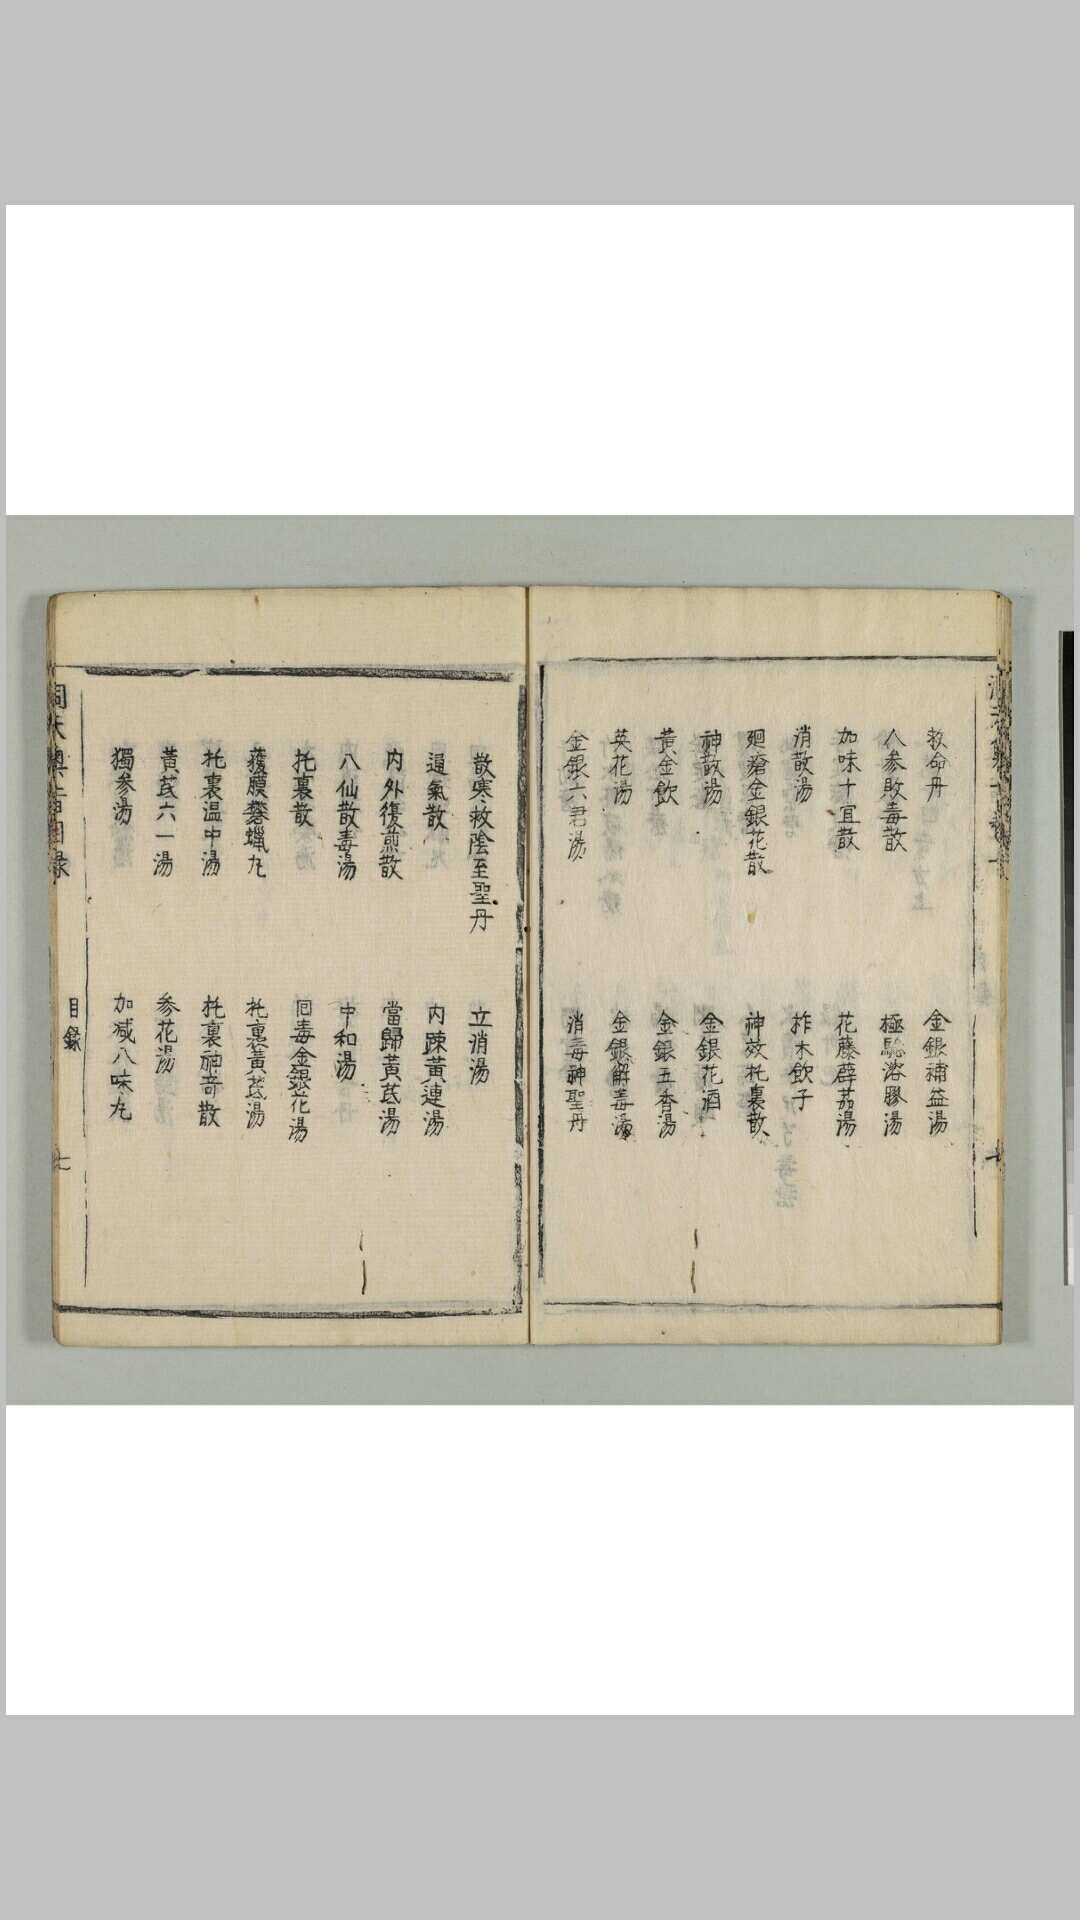 救命丹
金銀補益湯
人参敗毒散
極驗溶膠湯
加味十宣散
花藤薜茄湯
消散湯
柞木飲子
廻瘡金銀花散
神效托裏散
神散湯
金銀花酒
黃金飲
金銀五香湯
英花湯
金銀解毒湯
金銀六君湯
消毒神聖丹
散寒救陰至聖丹
立消湯
逼氣散
內疎黃連湯
內外復煎散
當歸黃茋湯
八仙散毒湯
中和湯
托裏散
回毒金銀花湯
護膜礬蠟丸
托裏黃茋湯
托裏温中湯
托裏神奇散
黃茋六一湯
参花湯
獨參湯
加减八味丸
洞天奥旨目録
目錄
七